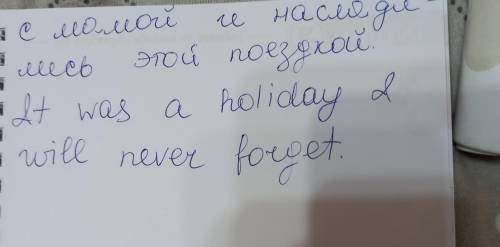 с мамой и наслади-
лись этой поездкой.
It was a holiday I
will never forget.